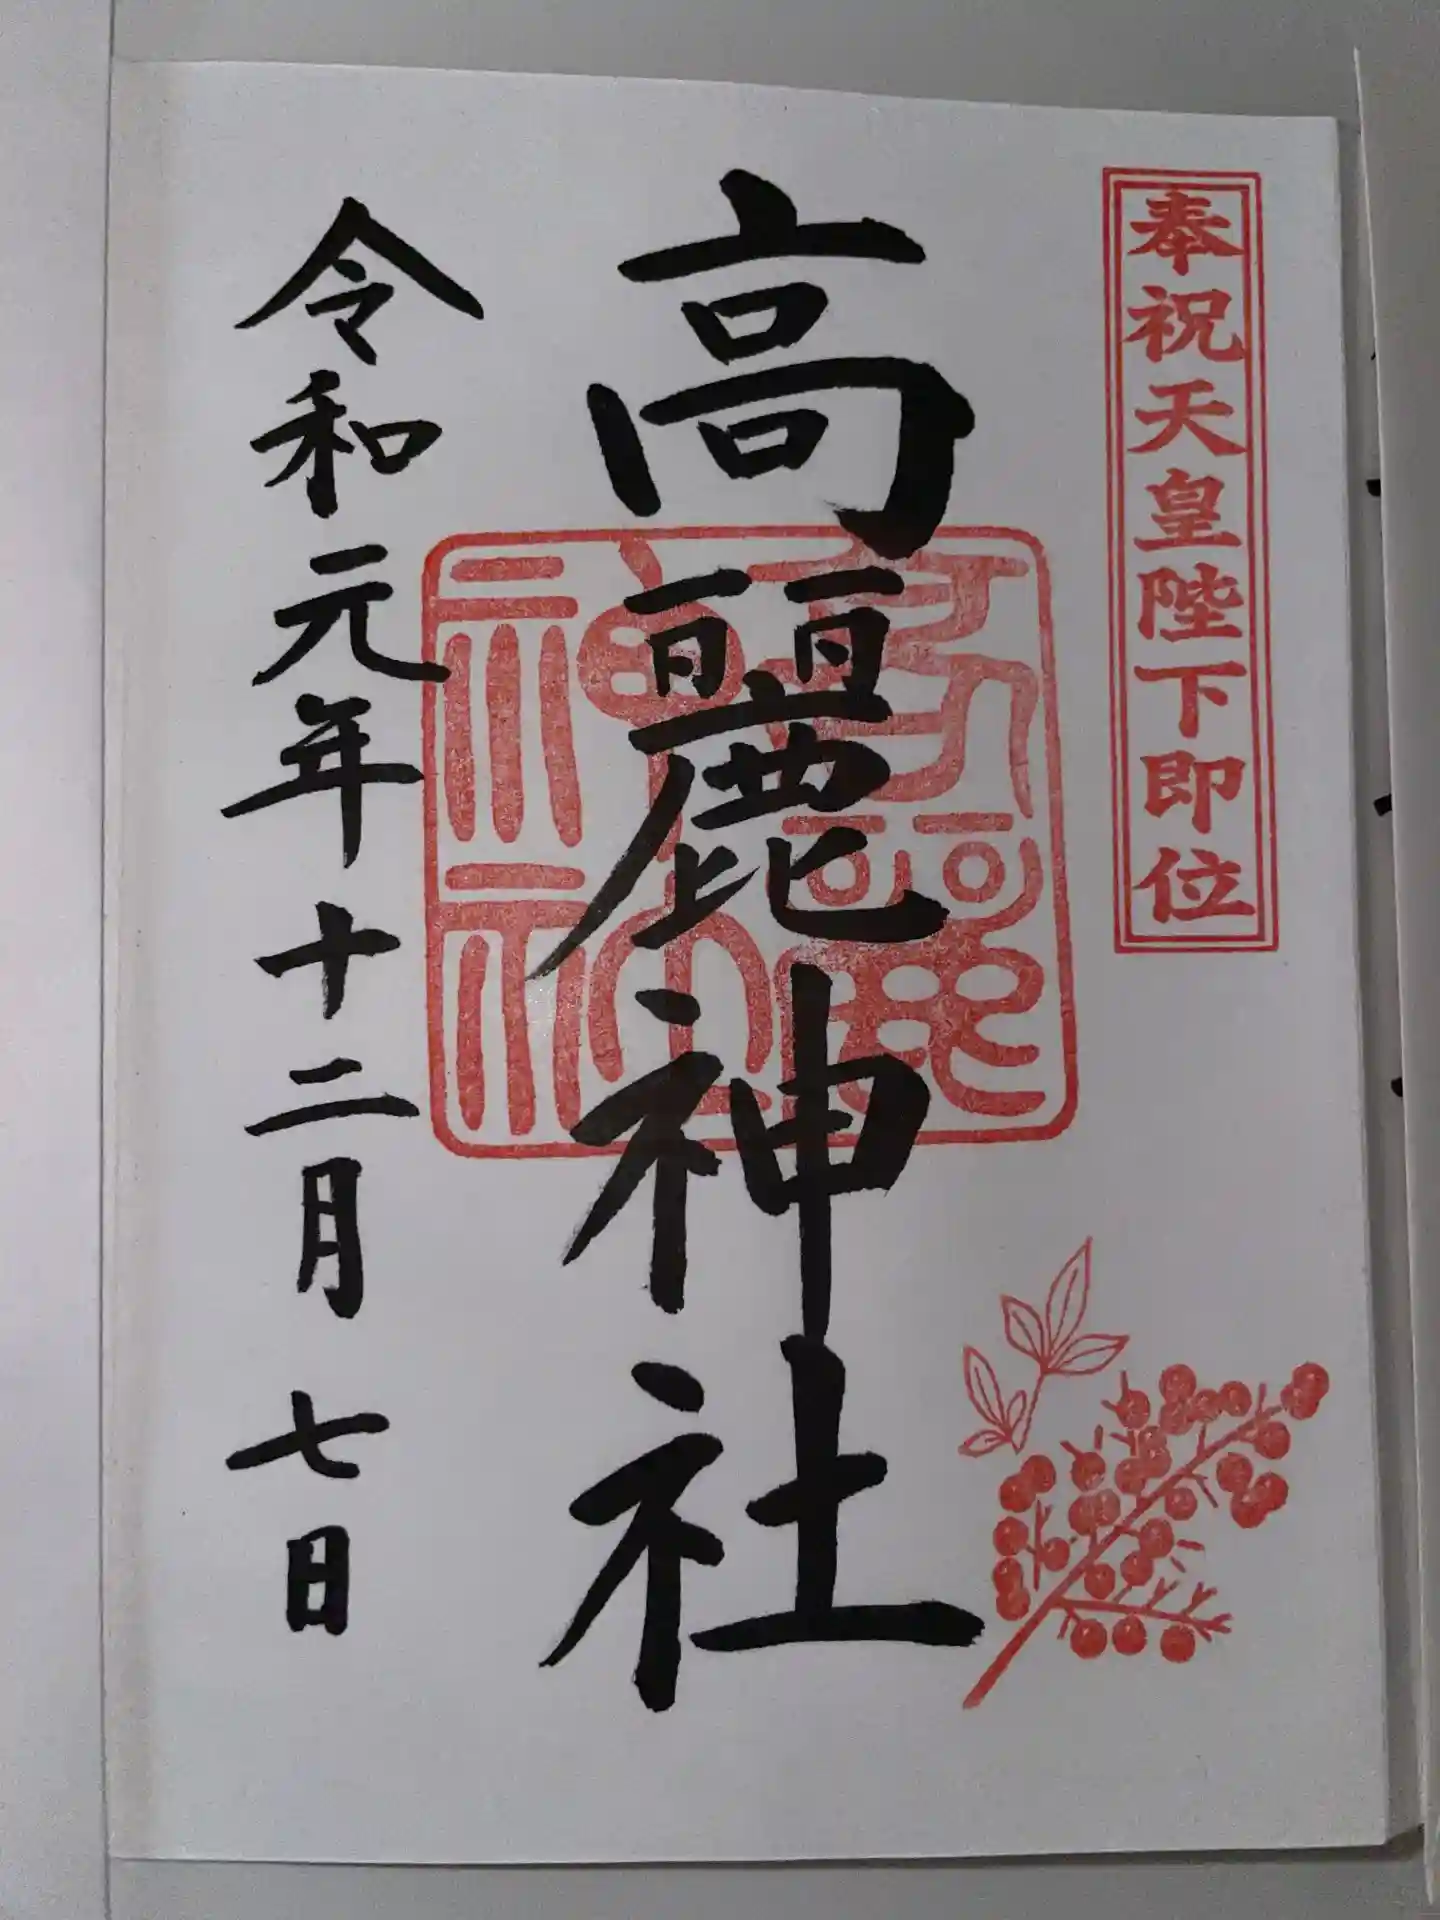 奉祝天皇陛下即位
高麗神社
高麗神社
令和元年十二月七日